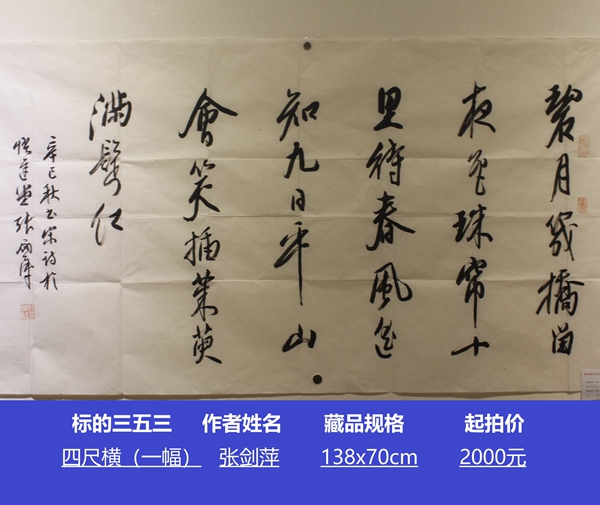 碧月幾橋留
夜色珠帘十
里待春風遥
知九日平山
會笑插茱萸
滿鬢红
辛巳秋书宋诗於
标的三五三 作者姓名 藏品规格 起拍价
四尺横（一幅） 张剑萍 138x70cm 2000元